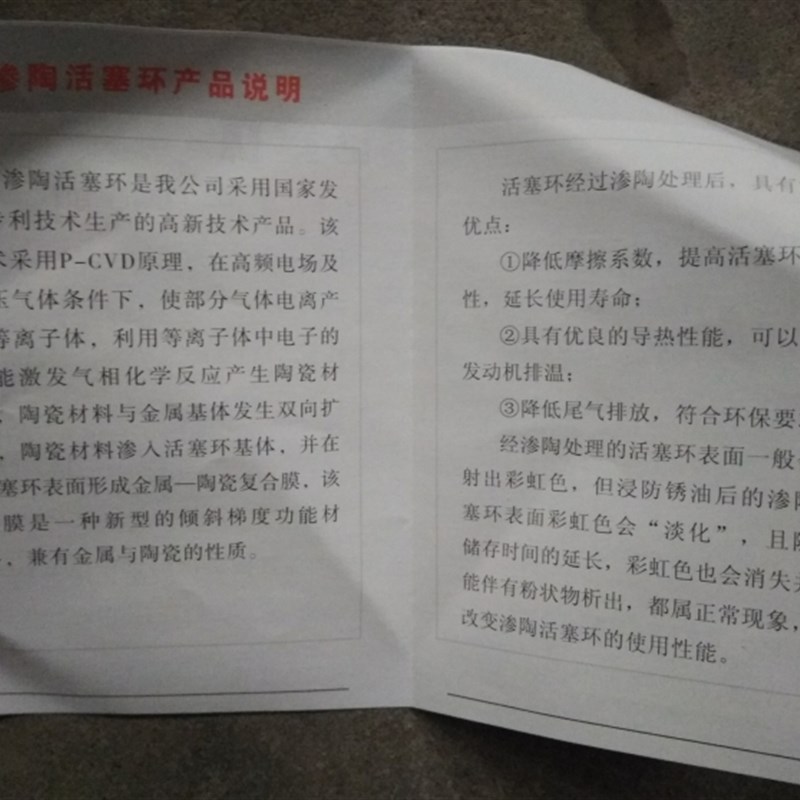 渗陶活塞环产品说明
渗陶活塞环是我公司采用国家发
专利技术生产的高新技术产品。该
术采用P-CVD原理，在高频电场及
压气体条件下，使部分气体电离产
等离子体，利用等离子体中电子的
能激发气相化学反应产生陶瓷材
，陶瓷材料与金属基体发生双向扩
，陶瓷材料渗入活塞环基体，并在
塞环表面形成金属—陶瓷复合膜，该
膜是一种新型的倾斜梯度功能材
，兼有金属与陶瓷的性质。
活塞环经过渗陶处理后，具有
优点：
①降低摩擦系数，提高活塞环
性，延长使用寿命；
②具有优良的导热性能，可以
发动机排温；
③降低尾气排放，符合环保要
经渗陶处理的活塞环表面一般
射出彩虹色，但浸防锈油后的渗陶
塞环表面彩虹色会“淡化”，且随
储存时间的延长，彩虹色也会消失
能伴有粉状物析出，都属正常现象，
改变渗陶活塞环的使用性能。